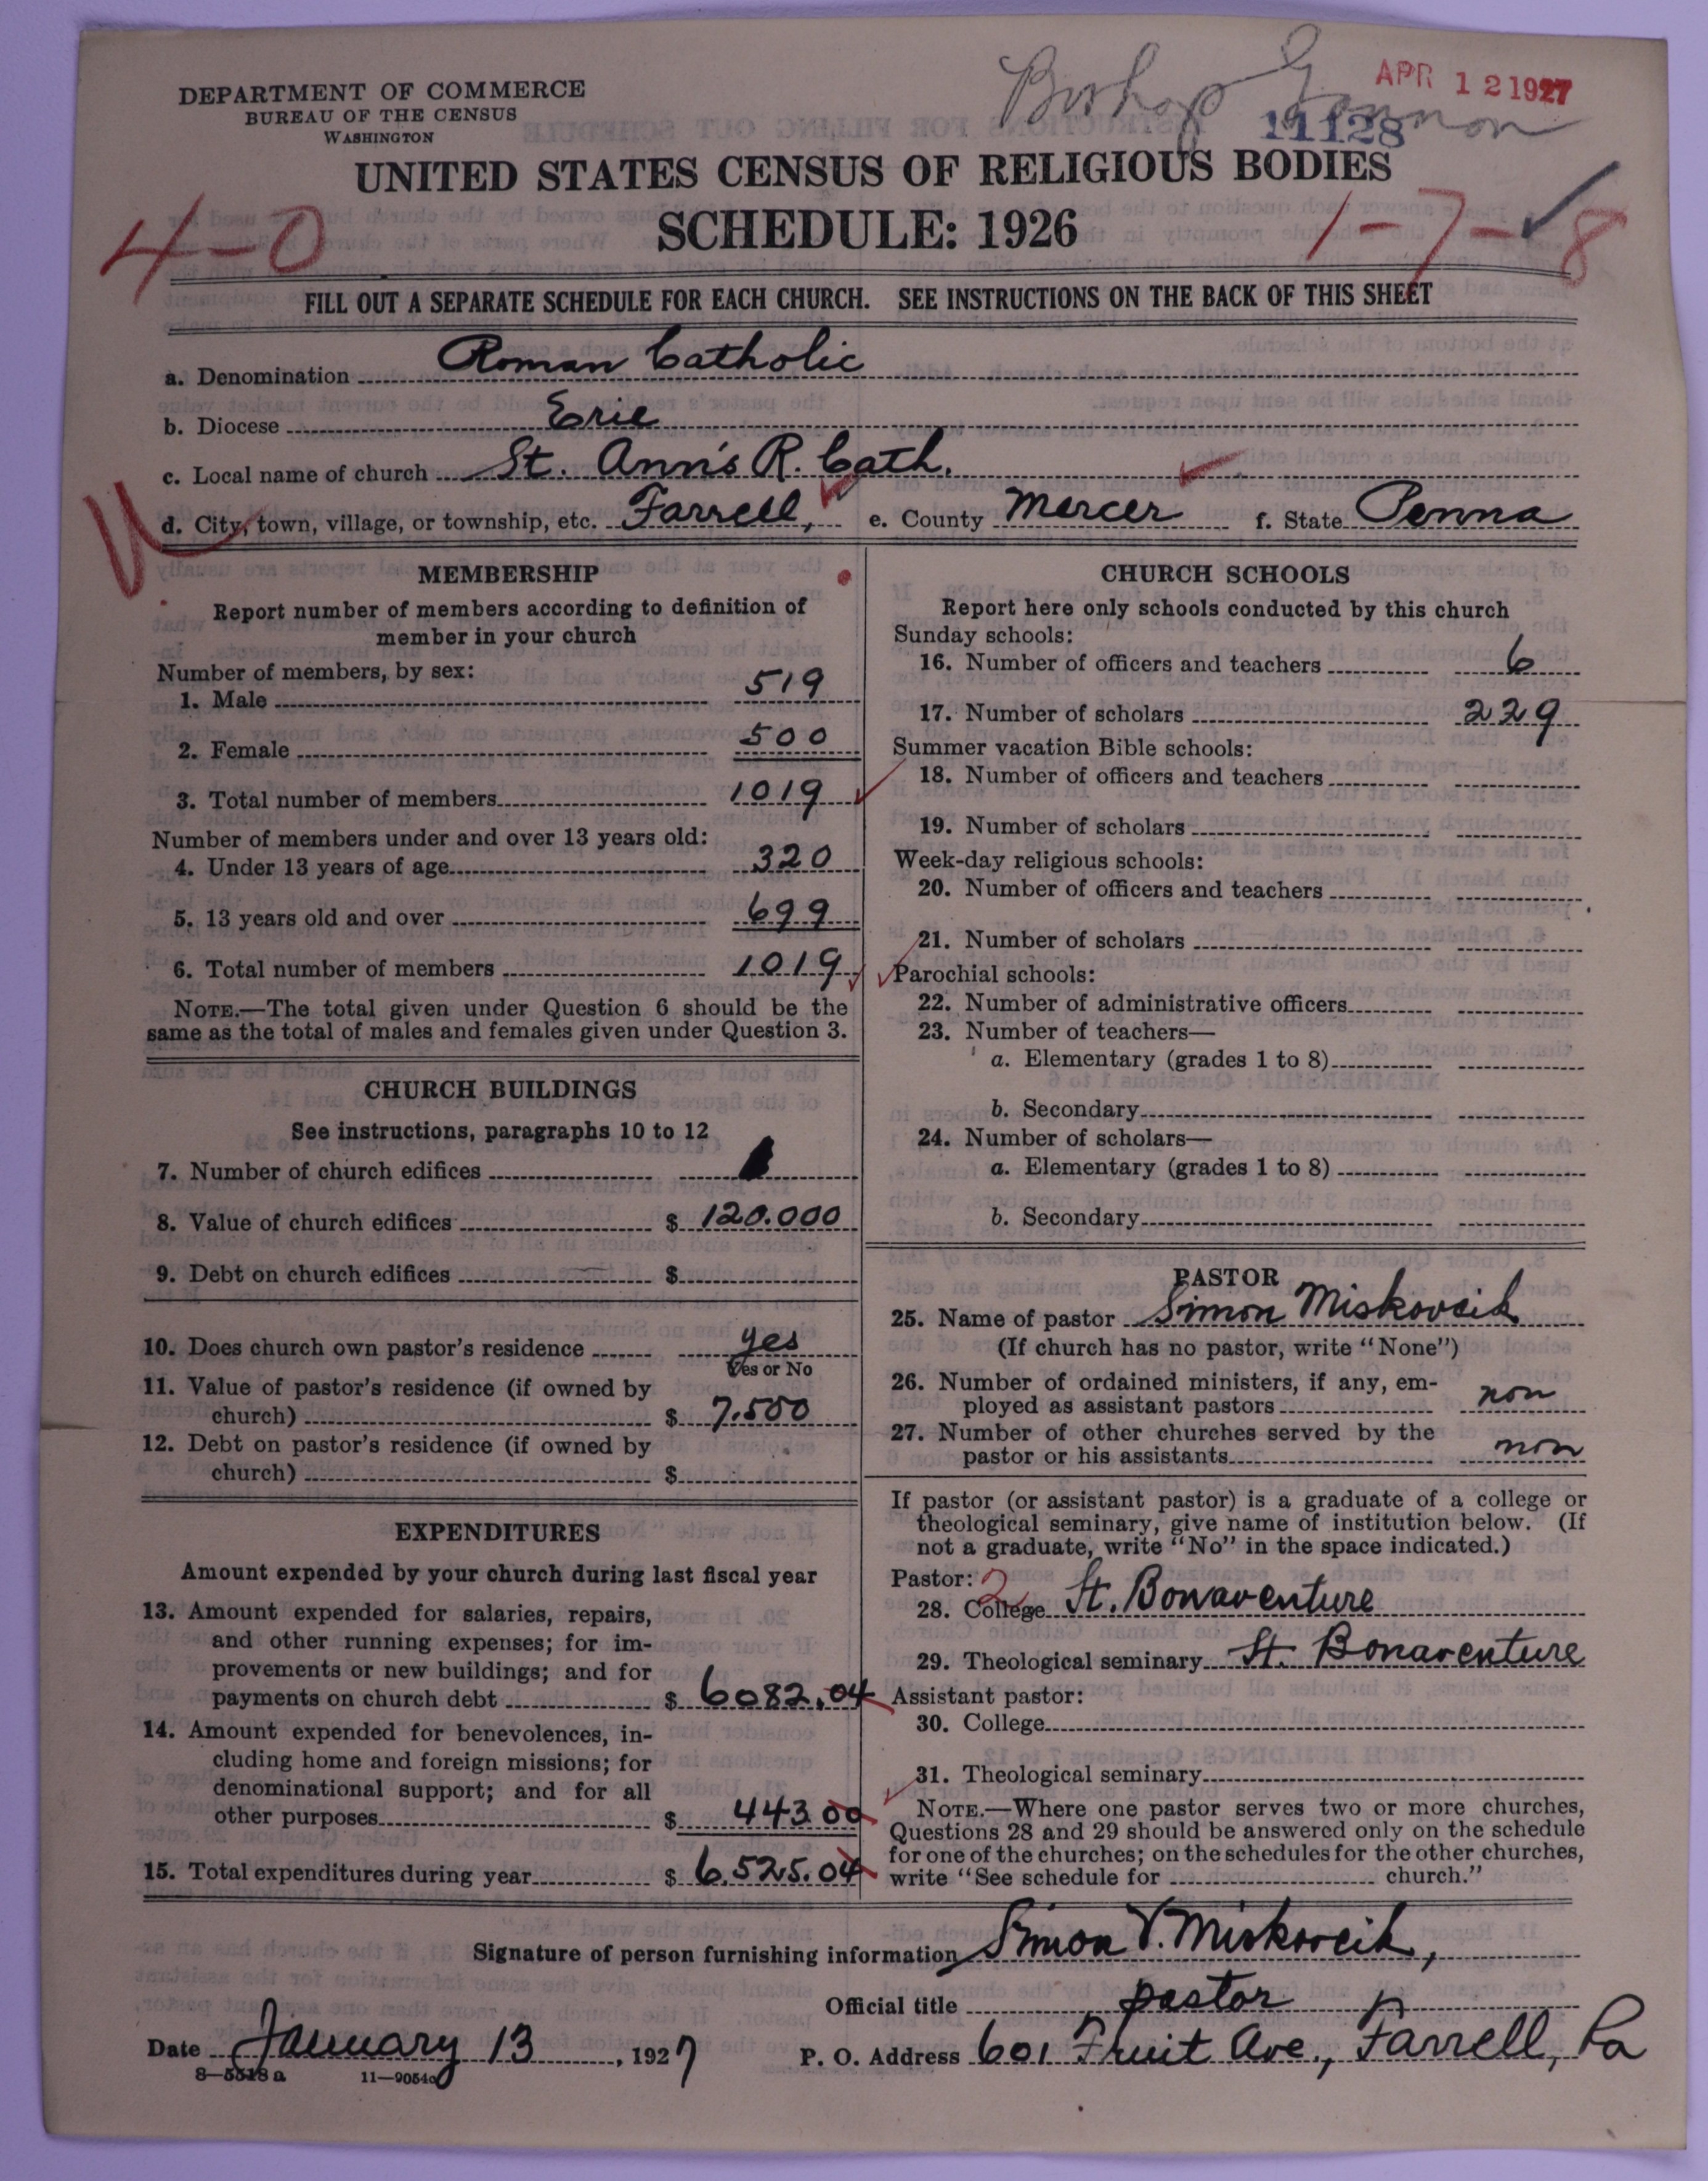 Bishop Gannon
APR 12 1927
11128
DEPARTMENT OF COMMERCE
BUREAU OF THE CENSUS
WASHINGTON
UNITED STATES CENSUS OF RELIGIOUS BODIES
SCHEDULE: 1926
4-0
1-7-8
FILL OUT A SEPARATE SCHEDULE FOR EACH CHURCH. SEE INSTRUCTIONS ON THE BACK OF THIS SHEET
a. Denomination Roman Catholic
b. Diocese Erie
c. Local name of church St. Ann's R. Cath.
d. City, town, village, or township, etc. Farrell, e. County Mercer f. State Penna
MEMBERSHIP
Report number of members according to definition of
member in your church
Number of members, by sex:
1. Male 519
2. Female 500
3. Total number of members 1019
Number of members under and over 13 years old:
4. Under 13 years of age 320
5. 13 years old and over 699
6. Total number of members 1019
NOTE.—The total given under Question 6 should be the
same as the total of males and females given under Question 3.
CHURCH BUILDINGS
See instructions, paragraphs 10 to 12
7. Number of church edifices 1
8. Value of church edifices $ 120.000
9. Debt on church edifices $
10. Does church own pastor's residence yes
Yes or No
11. Value of pastor's residence (if owned by
church) $ 7.500
12. Debt on pastor's residence (if owned by
church) $
EXPENDITURES
Amount expended by your church during last fiscal year
13. Amount expended for salaries, repairs,
and other running expenses; for im-
provements or new buildings; and for
payments on church debt $ 6082.04
14. Amount expended for benevolences, in-
cluding home and foreign missions; for
denominational support; and for all
other purposes $ 443.00
15. Total expenditures during year $ 6.525.04
CHURCH SCHOOLS
Report here only schools conducted by this church
Sunday schools:
16. Number of officers and teachers 6
17. Number of scholars 229
Summer vacation Bible schools:
18. Number of officers and teachers
19. Number of scholars
Week-day religious schools:
20. Number of officers and teachers
21. Number of scholars
Parochial schools:
22. Number of administrative officers
23. Number of teachers—
a. Elementary (grades 1 to 8)
b. Secondary
24. Number of scholars—
a. Elementary (grades 1 to 8)
b. Secondary
PASTOR
25. Name of pastor Simon Miskovcik
(If church has no pastor, write "None")
26. Number of ordained ministers, if any, em-
ployed as assistant pastors non
27. Number of other churches served by the
pastor or his assistants non
If pastor (or assistant pastor) is a graduate of a college or
theological seminary, give name of institution below. (If
not a graduate, write "No" in the space indicated.)
Pastor: 2
28. College St. Bonaventure
29. Theological seminary St. Bonaventure
Assistant pastor:
30. College
31. Theological seminary
NOTE.—Where one pastor serves two or more churches,
Questions 28 and 29 should be answered only on the schedule
for one of the churches; on the schedules for the other churches,
write "See schedule for church."
Signature of person furnishing information Simon V. Miskovcik,
Official title pastor
Date January 13, 1927 P. O. Address 601 Fruit Ave., Farrell, Pa
8—5518 a 11—9054a